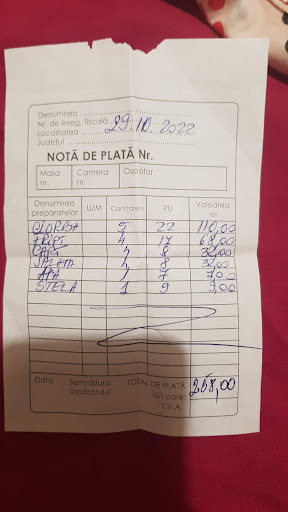 Denumirea
Nr. de înreg. fiscală 29.10.2022
Localitatea
Județul
NOTĂ DE PLATĂ Nr.
Masa nr. Camera nr. Ospătar
Denumirea preparatelor U/M Cantitatea PU Valoarea lei
CIORBA 5 22 110,00
FRIPT 4 17 68,00
4 8 32,00
SALATA 4 8 32,00
APA 1 7 7,00
STELA 1 9 9,00
Data Semnătura ospătarului TOTAL DE PLATĂ din care: T.V.A. 258,00